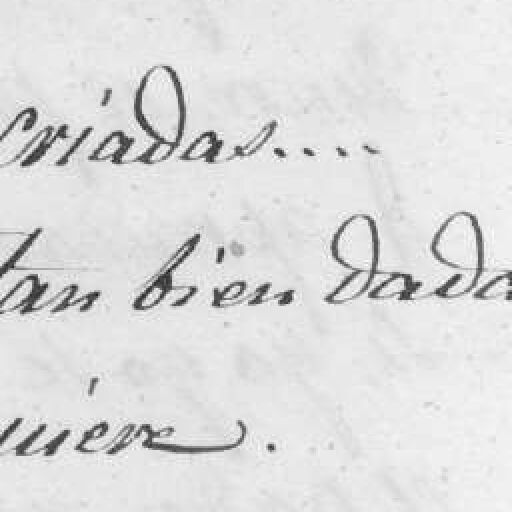 criadas....
tan bien dada
uiere.